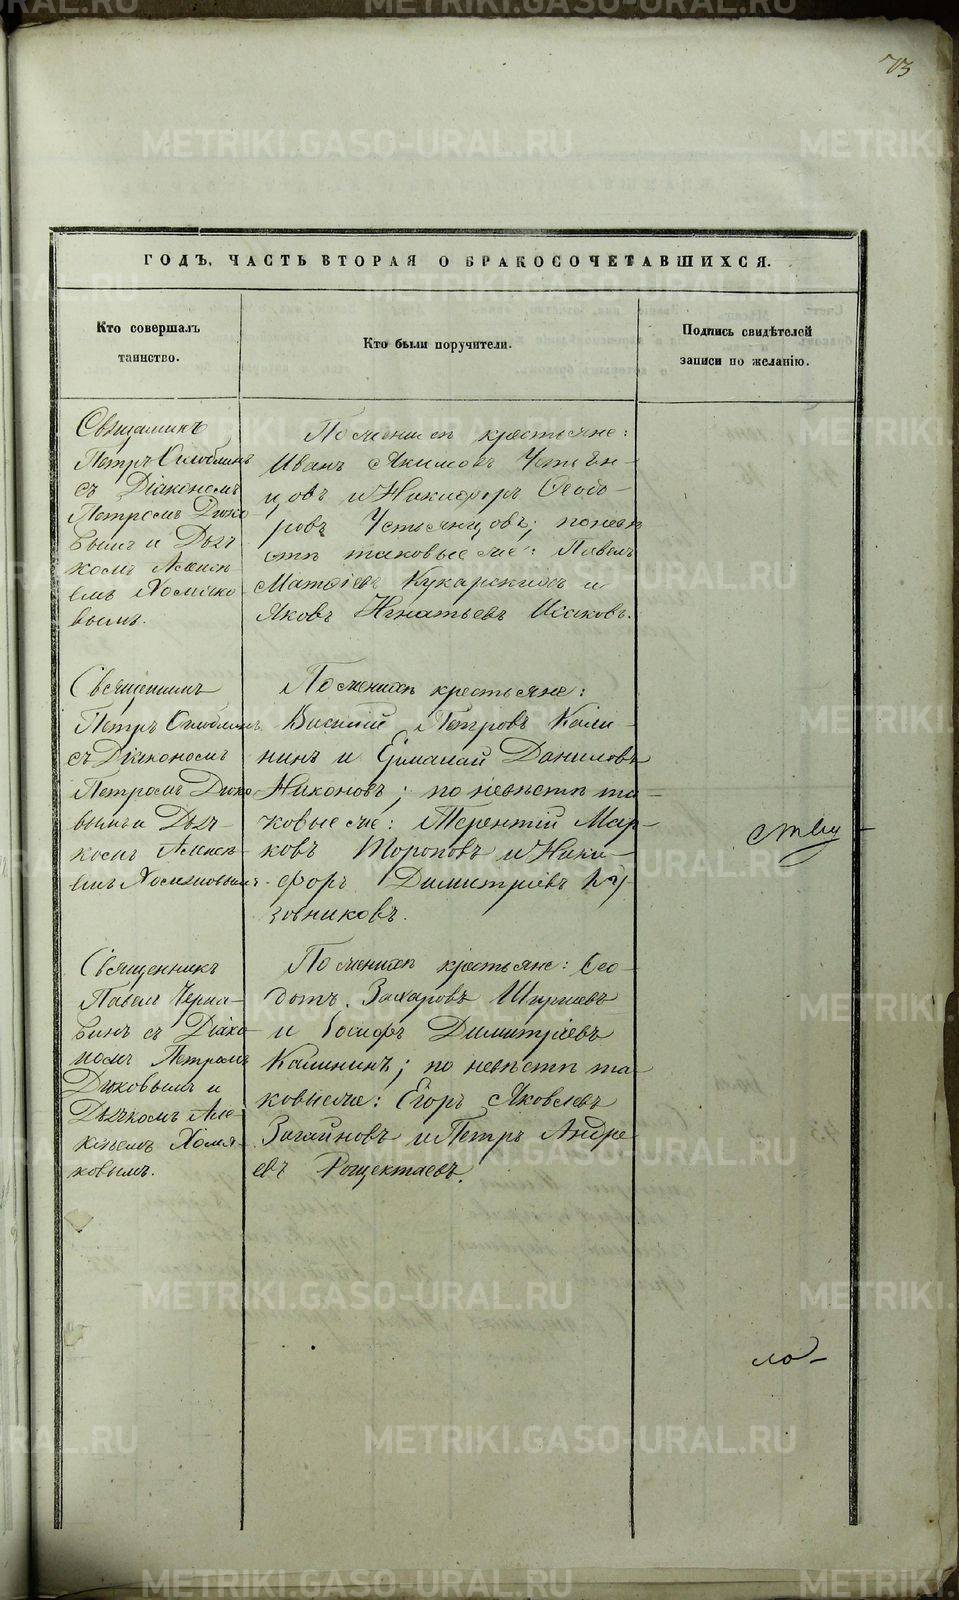 73
ГОДЪ, ЧАСТЬ ВТОРАЯ О БРАКОСОЧЕТАВШИХСЯ.
Кто совершалъ
таинство.
Кто были поручители.
Подпись свидѣтелей
записи по желанію.
Священникъ
Петръ
съ Діакономъ
Петромъ Дюко
вымъ и Дьяч
комъ Алексѣ
емъ Хомяко
вымъ.
По женихѣ крестьяне:
Иванъ Якимовъ Устьян-
цовъ и Никифоръ Ѳедо-
ровъ Устьянцовъ; по невѣ
стѣ таковые же: Павелъ
Матѳіевъ Кукарскихъ и
Яковъ Игнатьевъ Исаковъ.
Священникъ
Петръ
съ Діакономъ
Петромъ Дюко
вымъ и Дьяч-
комъ Алексѣ-
емъ Хомяковымъ.
По женихѣ крестьяне:
Василій Петровъ Кали-
нинъ и Ермолай Даниловъ
Никоновъ; по невѣстѣ та-
ковые же: Терентій Мар-
ковъ Тороповъ и Ники-
форъ Димитріевъ Ку
зовниковъ.
Священникъ
Павелъ Черна-
винъ съ Діако
номъ Петромъ
Дюковымъ и
Дьячкомъ Але
ксѣемъ Хомя
ковымъ.
По женихѣ крестьяне: Ѳео-
дотъ Захаровъ
и Іосифъ Димитріевъ
Калининъ; по невѣстѣ та-
ковые же: Егоръ Яковлевъ
Загайновъ и Петръ Андре
евъ Рощектаевъ.
ло-
METRIKI.GASO-URAL.RU